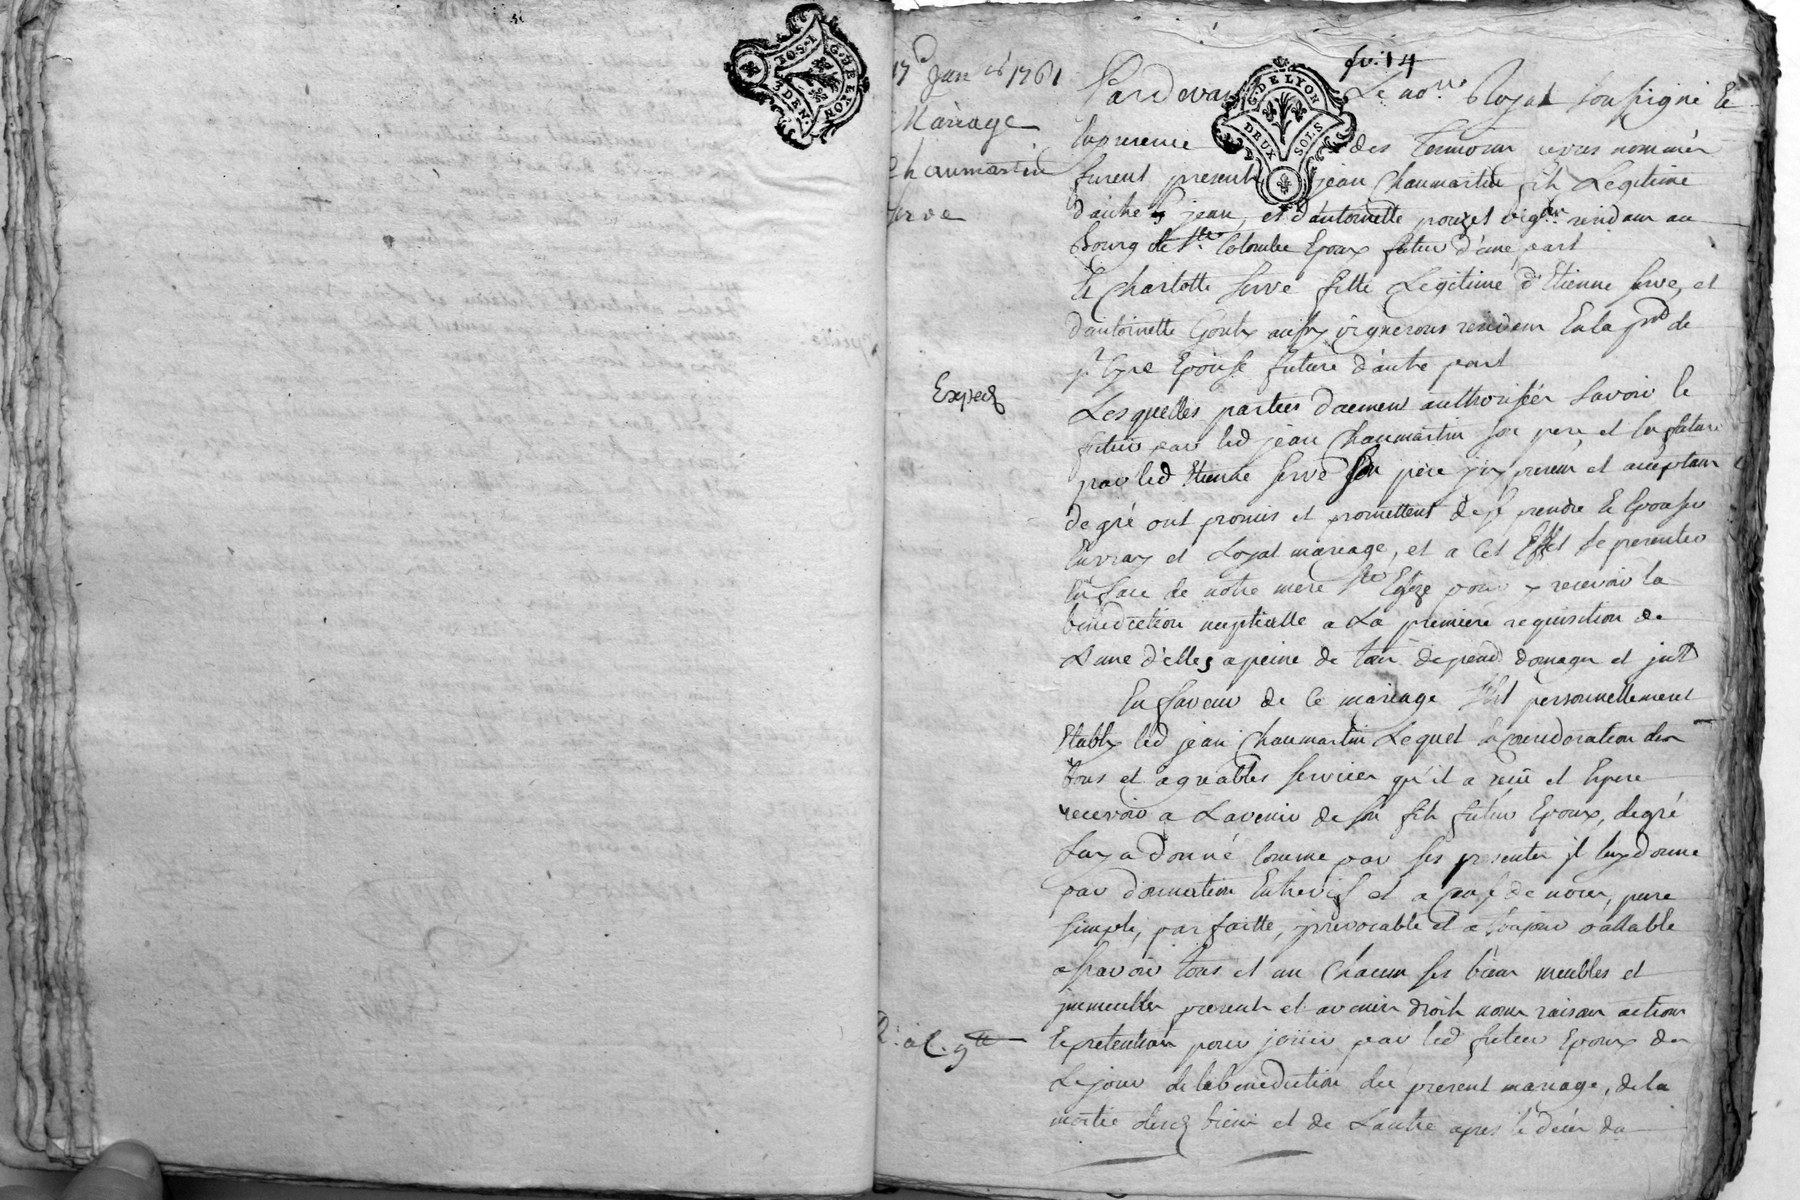 G. DE LYON
DEUX SOLS
fo. 14
17e Janer 1761
Mariage
Chaumartin
Serve
Expedé
Pardevant Le nore Royal soussigné Et
En presence des Temoins cy-bas nommés
furent presents jean Chaumartin fils Legitime
d'autre jean, et d'antoinette pouzet vigon residans au
Bourg de Ste Colombe Epoux futur d'une part
Et Charlotte Serve fille Legitime d'Etienne Serve, et
d'antoinette aussy vignerons residens En la de
st Cyre Epouse future d'autre part
Lesquelles parties duement authorisées savoir le
futur par led jean Chaumartin son pere, et la future
par led Etienne Serve son pere jcy present et acceptans
de gré ont promis et promettent de se prendre Et Epouser
En vray et Loyal mariage, et a Cet Effet se presenter
En face de notre mere Ste Eglize pour y recevoir la
benediction nuptialle a La premiere requisition de
L'une d'elles a peine de tous depend domages et jntts
En faveur de Ce mariage s'est personnellement
Etably led jean Chaumartin Lequel En Consideration des
bons et agreables services qu'il a reçu et Espere
recevoir a L'avenir de son fils futur Epoux, de gré
Luy a donné Comme par ses presentes jl luy donne
par donnation Entrevifs et a Cause de noces, pure
simple, parfaitte, jrrevocable et a toujour vallable
a sçavoir tous et un Chacun ses biens meubles et
jmmeubles presents et avenir droits noms raisons actions
Et pretentions pour jouir par led futur Epoux des
Le jour de la benediction du present mariage, de la
moitié desd biens et de L'autre apres le deces du